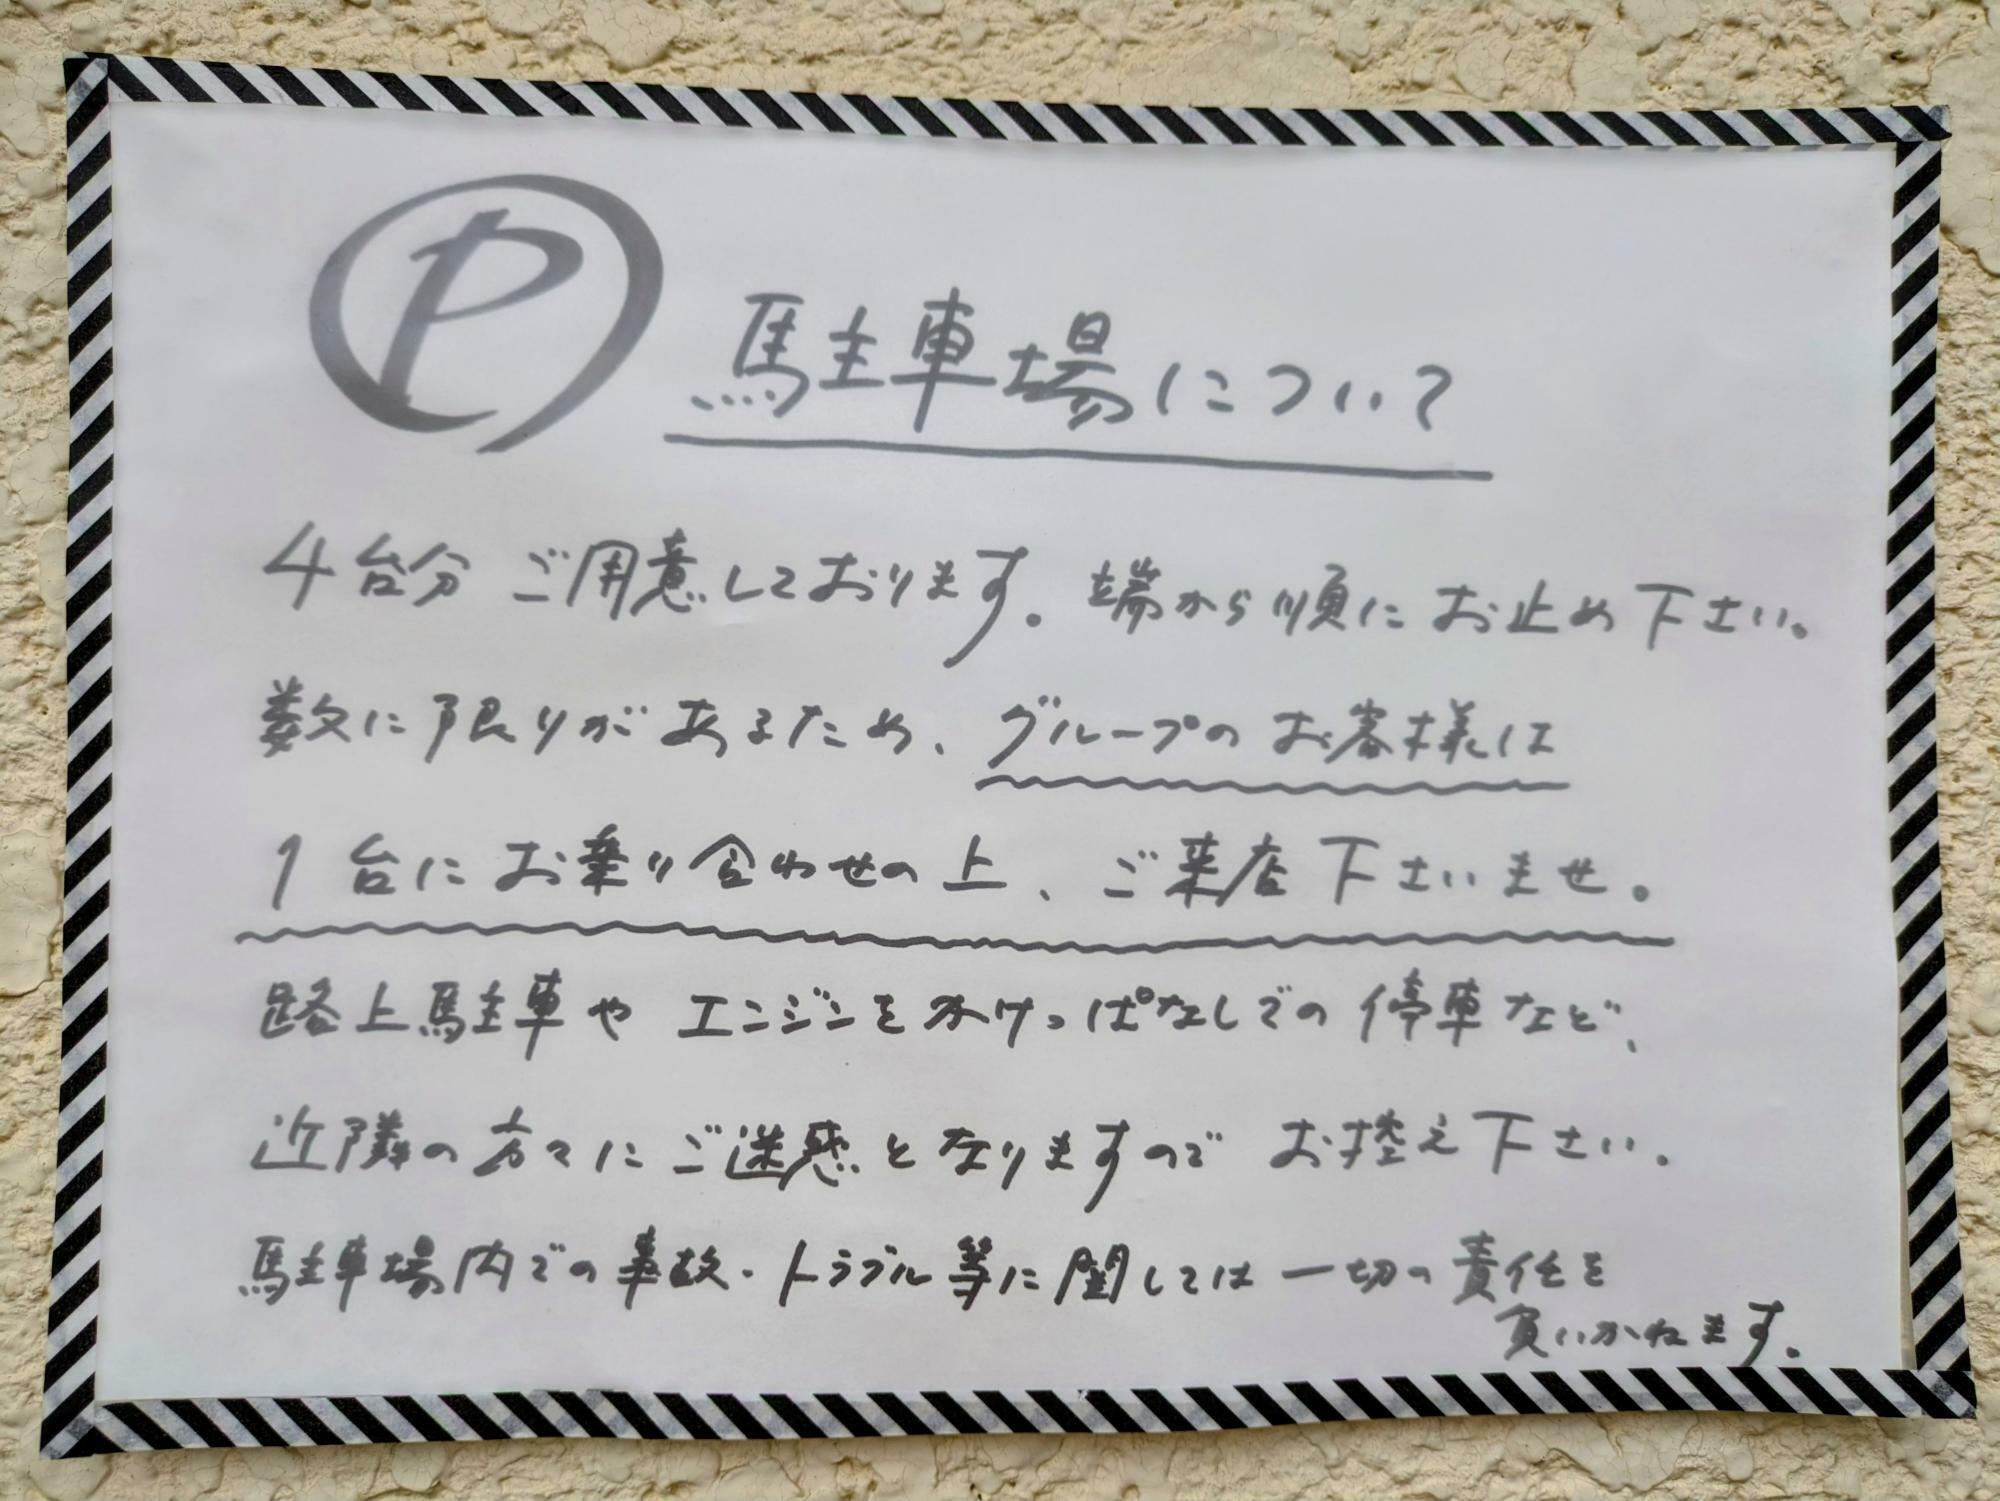 P 駐車場について
4台分 ご用意しております。端から順にお止め下さい。
数に限りがあるため、グループのお客様は
1台にお乗り合わせの上、ご来店下さいませ。
路上駐車や エンジンをかけっぱなしでの 停車など、
近隣の方々にご迷惑となりますので お控え下さい。
駐車場内での事故・トラブル等に関しては一切の責任を
負いかねます。